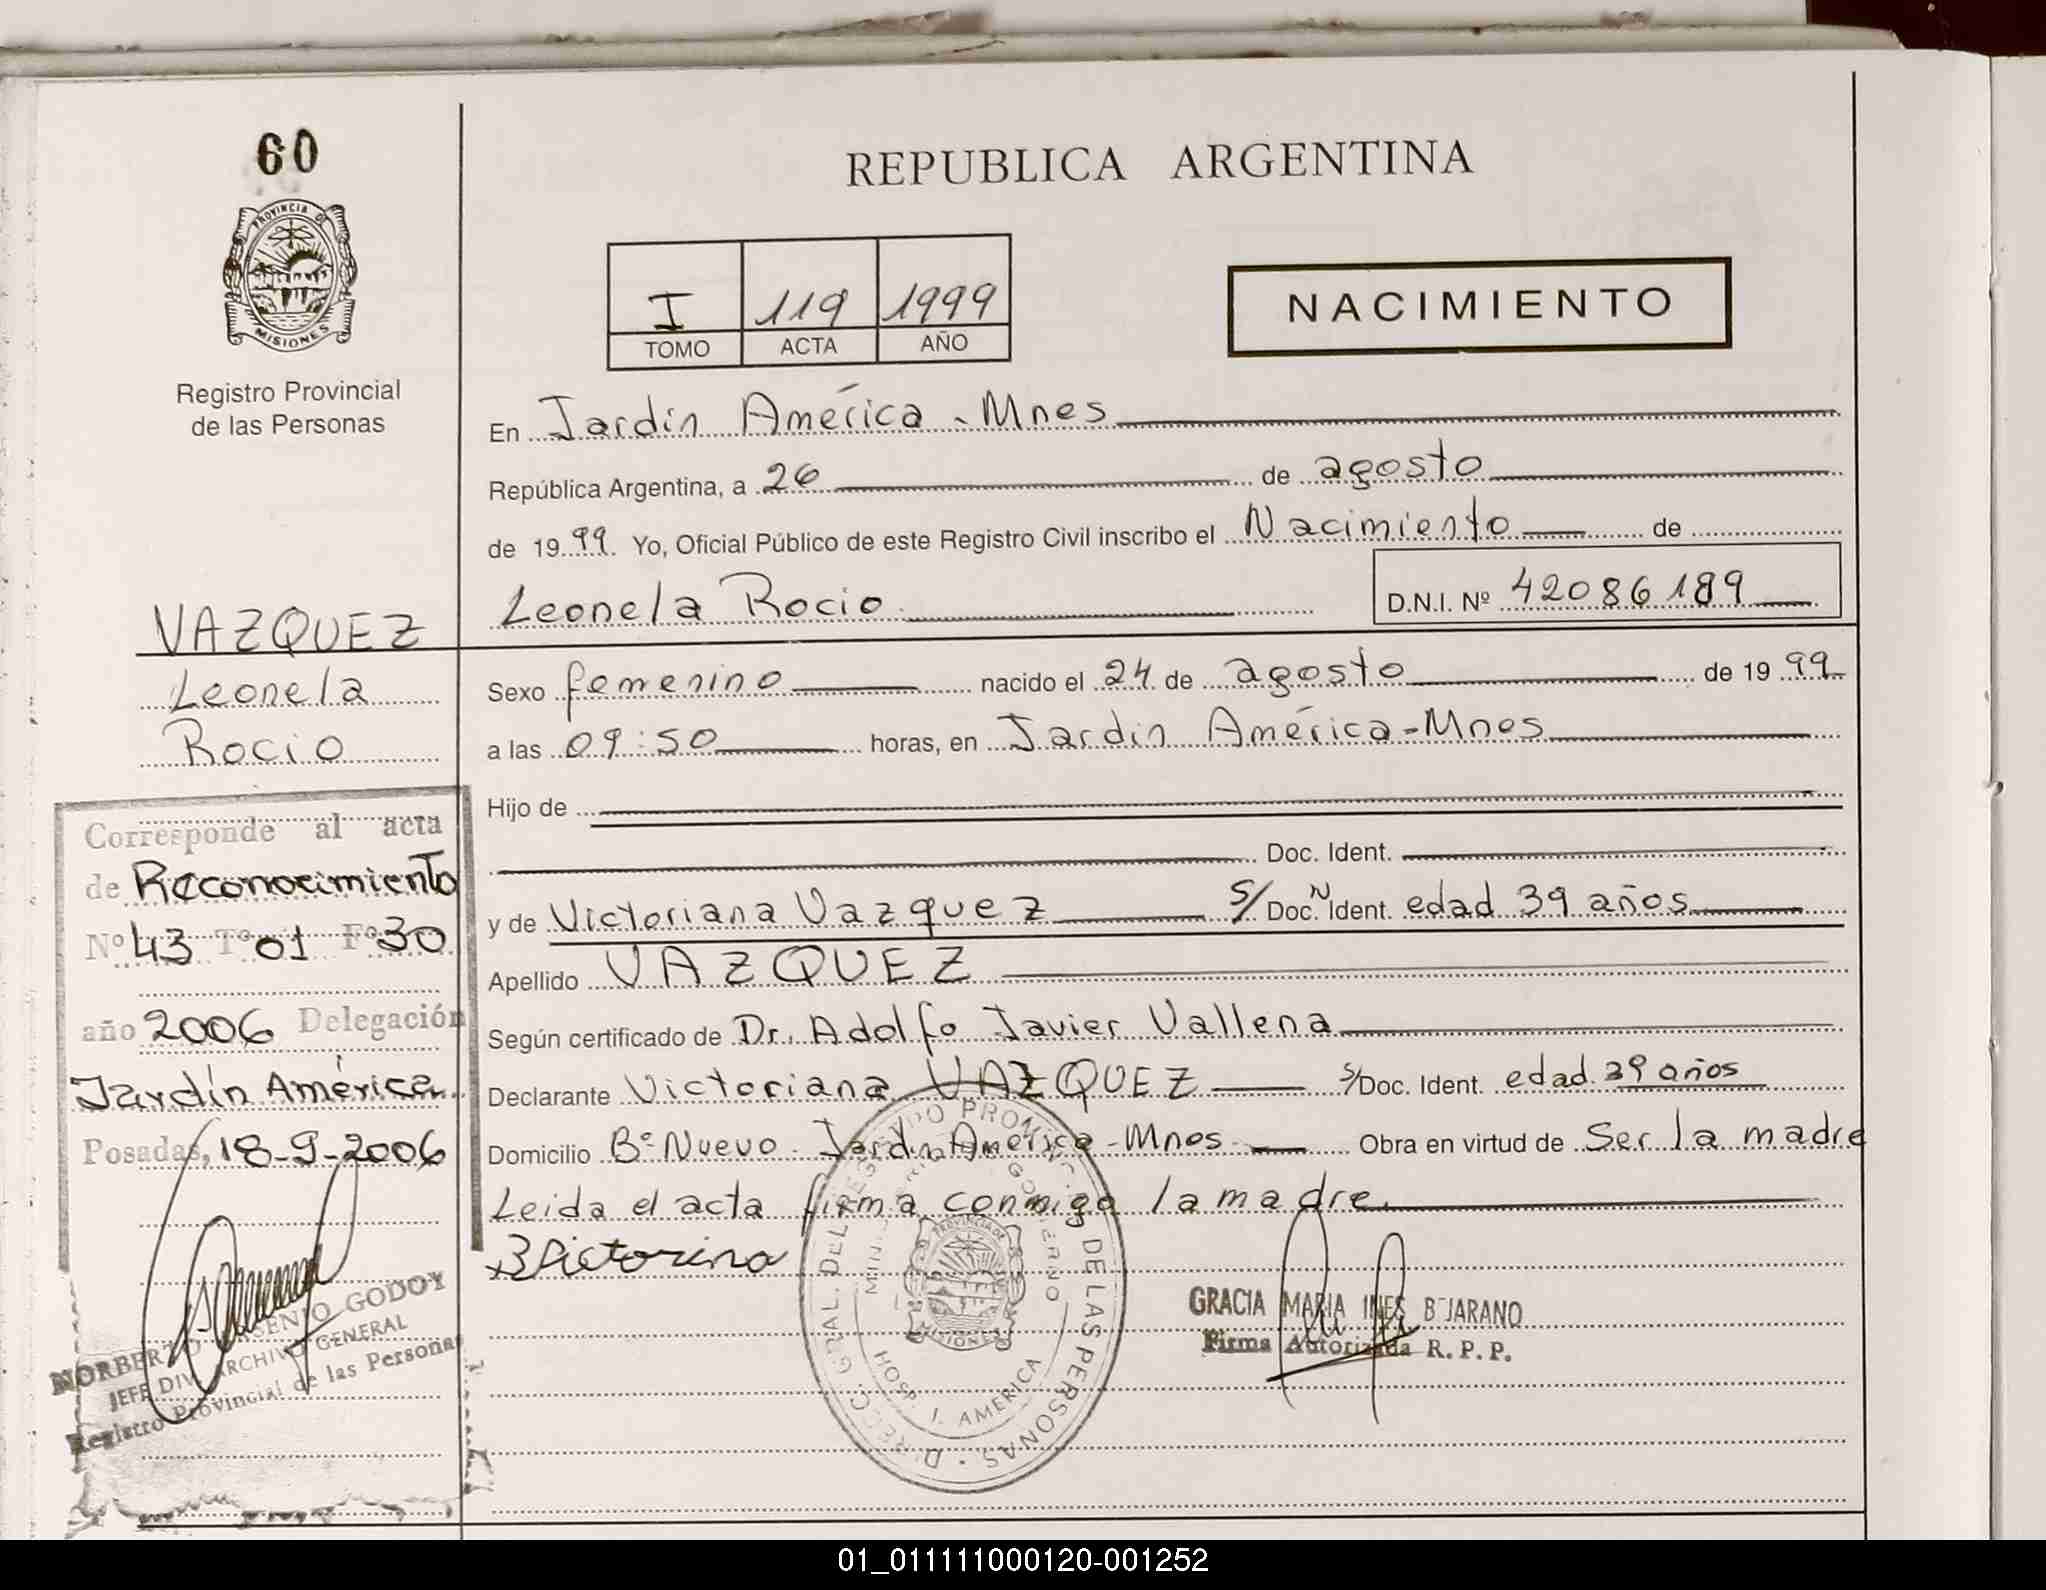 60
PROVINCIA DE
MISIONES
Registro Provincial
de las Personas
VAZQUEZ
Leonela
Rocio
Corresponde al acta
de Reconocimiento
Nº 43 Tº 01 Fº 30
año 2006 Delegación
Jardín América
Posadas, 18-9-2006
NORBERTO SENIO GODOY
JEFE DIV. ARCHIVO GENERAL
Registro Provincial de las Personas
REPUBLICA ARGENTINA
I 119 1999
TOMO ACTA AÑO
NACIMIENTO
En Jardín América - Mnes
República Argentina, a 26 de agosto
de 1999. Yo, Oficial Público de este Registro Civil inscribo el Nacimiento de
Leonela Rocio D.N.I. Nº 42086189
Sexo femenino nacido el 24 de agosto de 1999
a las 09:50 horas, en Jardin América - Mnes
Hijo de
Doc. Ident.
y de Victoriana Vazquez S/ Doc. N Ident. edad 39 años
Apellido VAZQUEZ
Según certificado de Dr. Adolfo Javier Vallena
Declarante Victoriana VAZQUEZ S/Doc. Ident. edad 39 años
Domicilio Bº Nuevo - Jardin América - Mnes - Obra en virtud de Ser la madre
Leida el acta firma conmigo la madre.
GRAL. DEL REGISTRO PROV. DE LAS PERSONAS
GOBIERNO
PROVINCIA DE
MISIONES
HOSP. J. AMERICA
GRACIA MARIA INES BEJARANO
Firma Autorizada R. P. P.
01_011111000120-001252